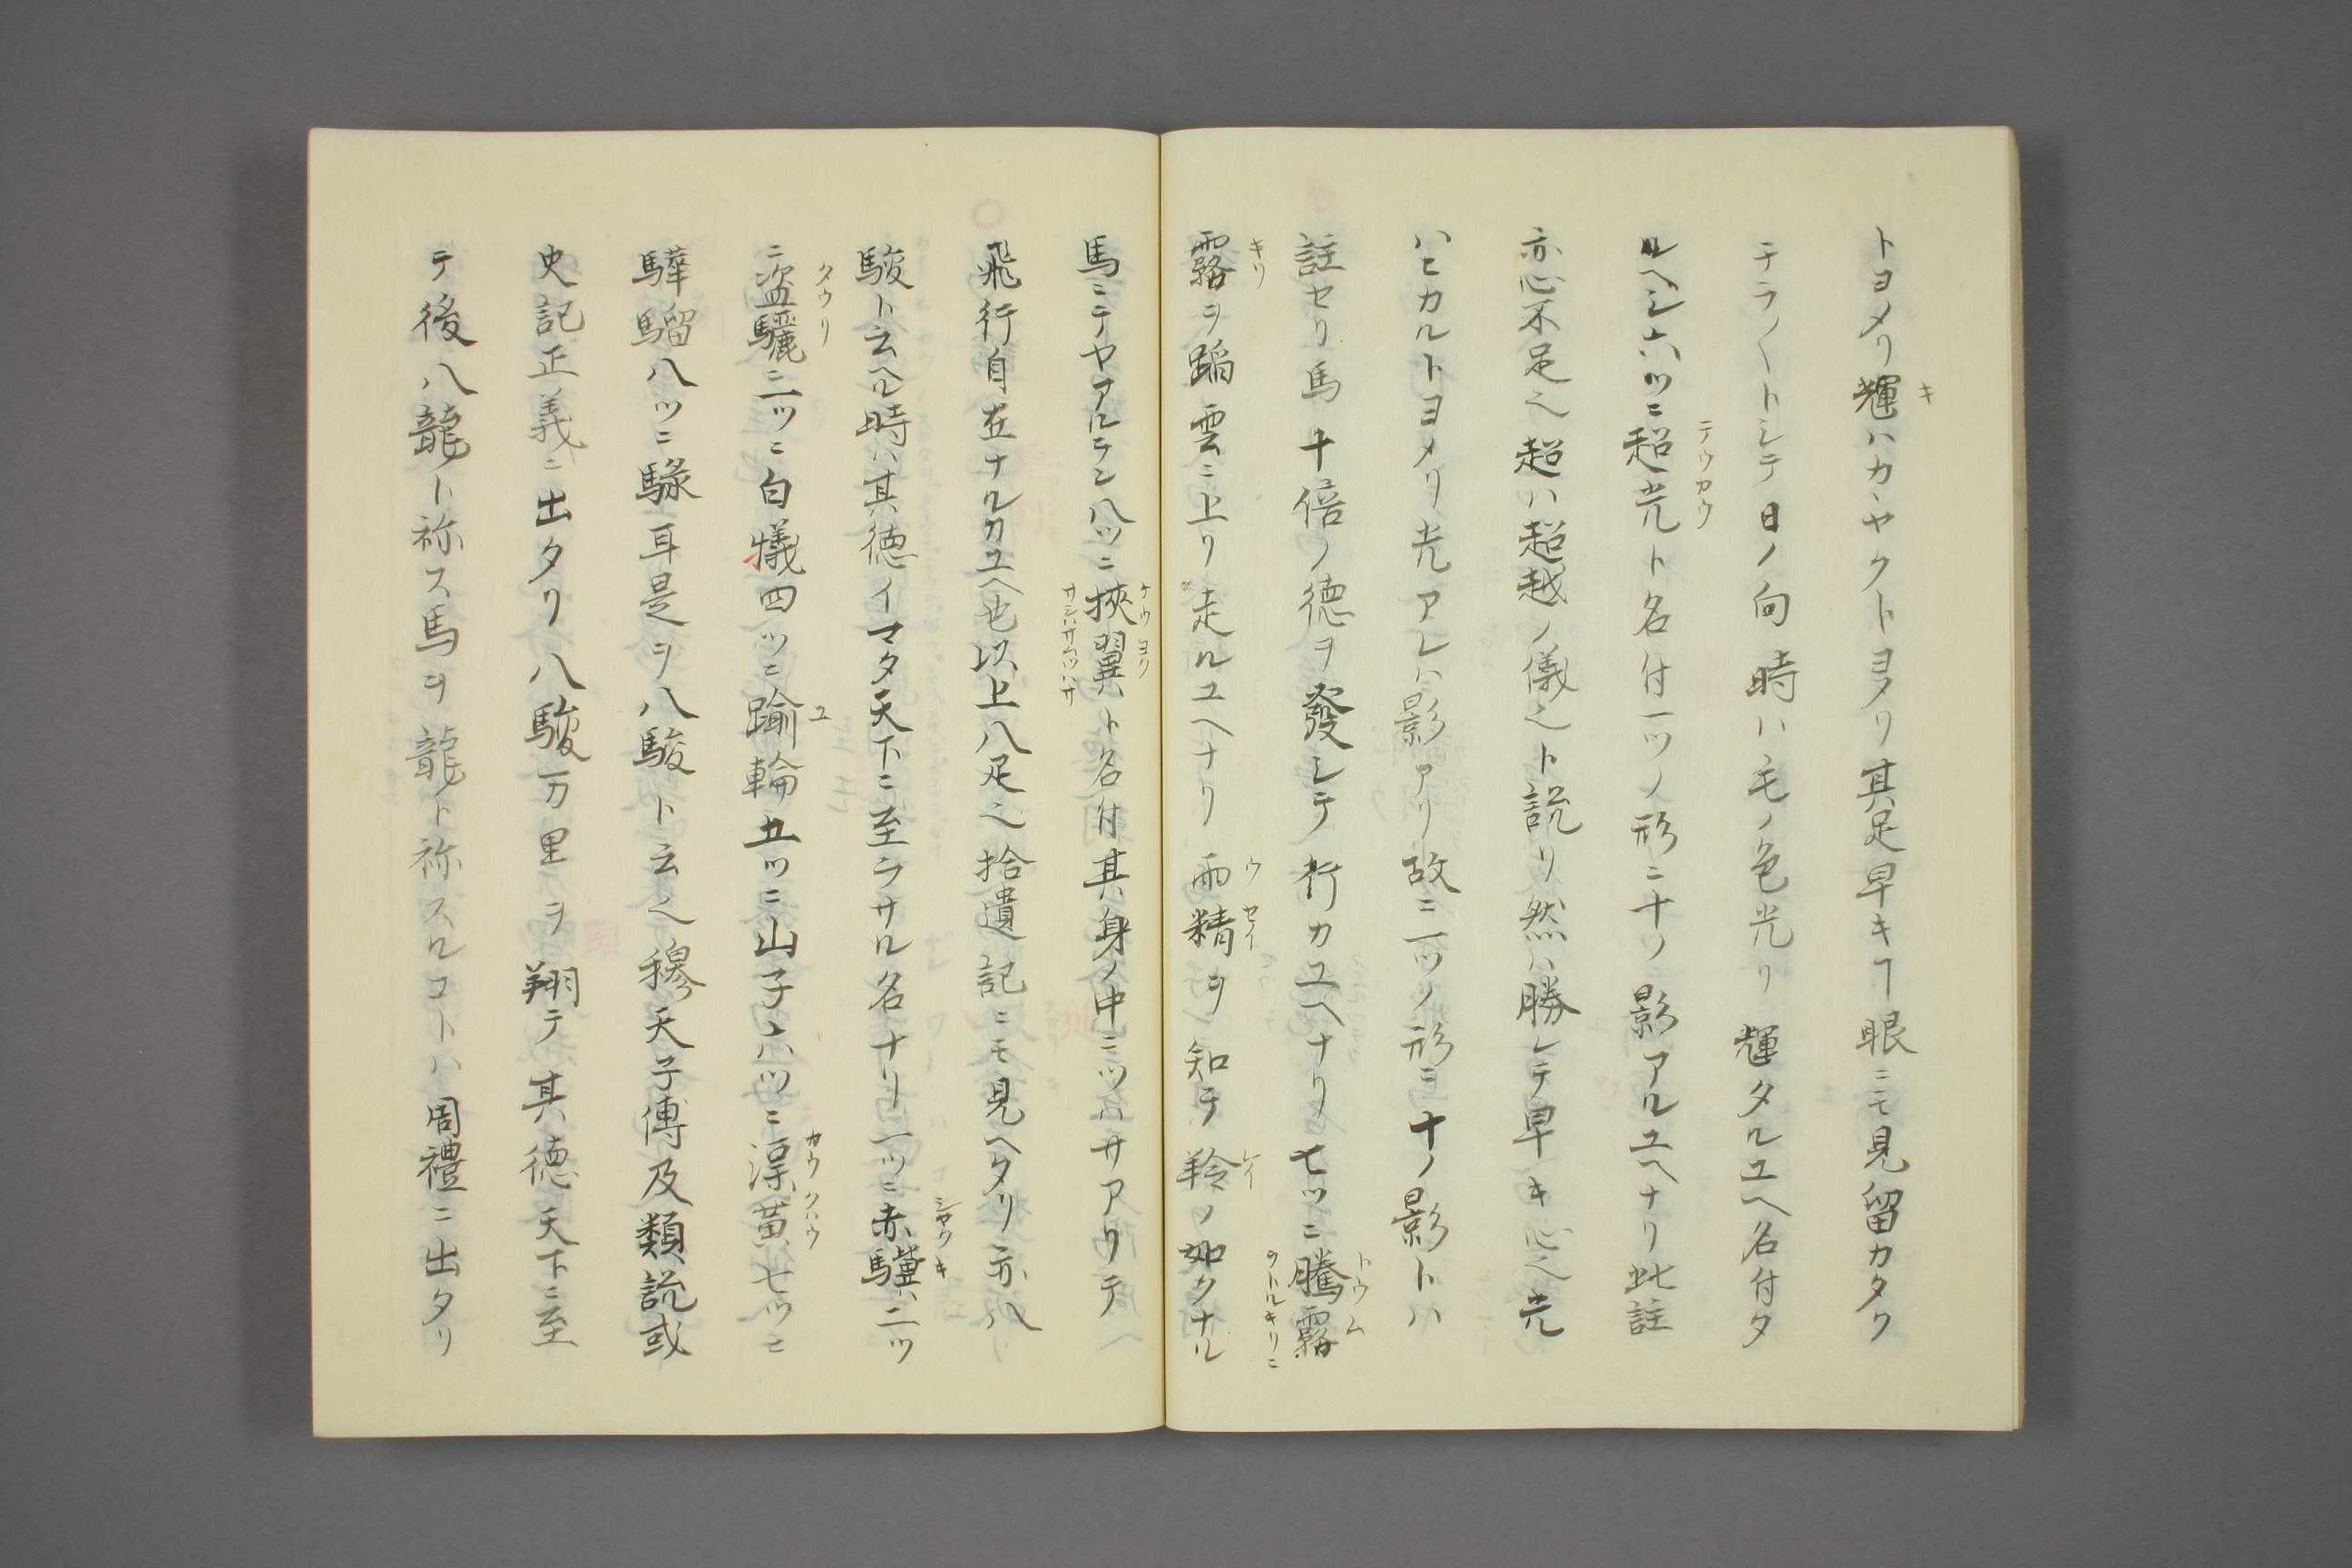 トヨメリ輝ハカヽヤクトヨメリ其足早キヿ眼ニモ見留カタク
テラ〳〵トシテ日ノ向時ハ毛ノ色光リ輝タルユヘ名付タ
ルヘシ六ツニ超光ト名付一ツノ形ニ十ノ影アルユヘナリ此註
亦心不足也超ハ超越ノ儀也ト説リ然ハ勝レテ早キ心也光
ハヒカルトヨメリ光アレハ影アリ故ニ一ツノ形ニ十ノ影トハ
註セリ馬十倍ノ徳ヲ發シテ行カユヘナリ七ツニ騰霧
霧ヲ蹈雲ニ上リ走ルユヘナリ雨精ヲ知テ羚ノ如クナル
馬ニテヤアルラン八ツニ挾翼ト名付其身ノ中ニツハサアリテ
飛行自在ナルカユヘ也以上八疋也拾遺記ニモ見ヘタリ亦八
駿ト云ヘル時ハ其徳イマタ天下ニ至ラサル名ナリ一ツニ赤驥二ツ
ニ盗驪三ツニ白㸌四ツニ踰輪五ツニ山子六ツニ渠黄七ツニ
驊騮八ツニ騄耳是ヲ八駿ト云也穆天子傳及類説或
史記正義ニ出タリ八駿万里ヲ翔テ其徳天下ニ至
テ後八龍ト称ス馬ヲ龍ト称スルコトハ周禮ニ出タリ